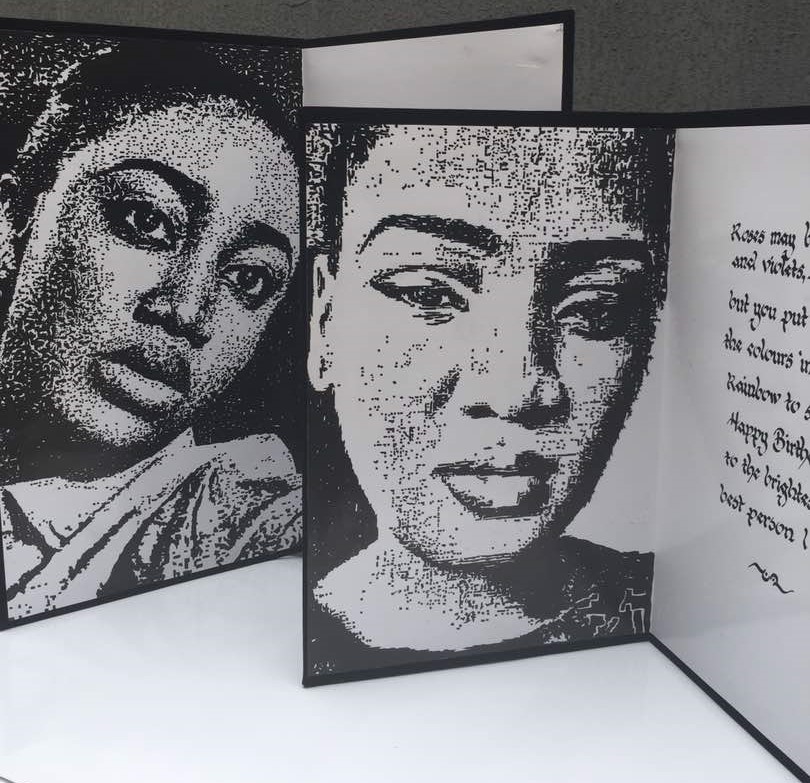 Roses may
and violets
but you put
the colours in
Rainbow to
Happy Birthd
to the brighte
best person I